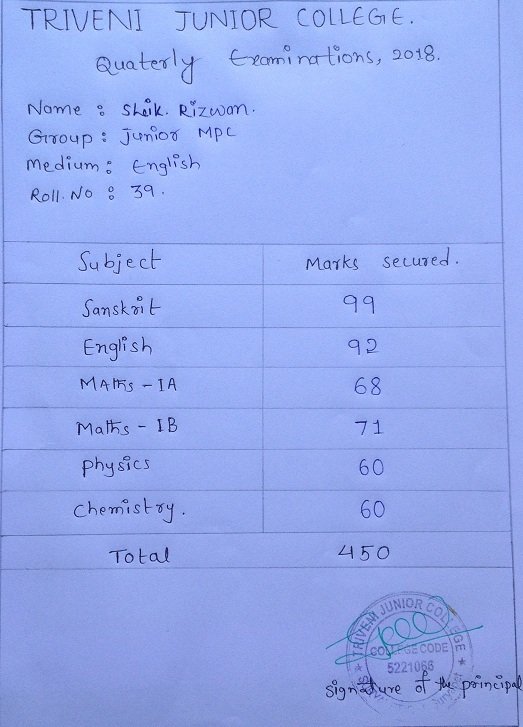 TRIVENI JUNIOR COLLEGE.
Quaterly Examinations, 2018.
Name : Shaik. Rizwan.
Group : Junior MPC
Medium : English
Roll. No : 39.
Subject Marks secured.
Sanskrit 99
English 92
MAths - IA 68
Maths - IB 71
physics 60
chemistry. 60
Total 450
TRIVENI JUNIOR COLLEGE
COLLEGE CODE
5221066
signature of the principal